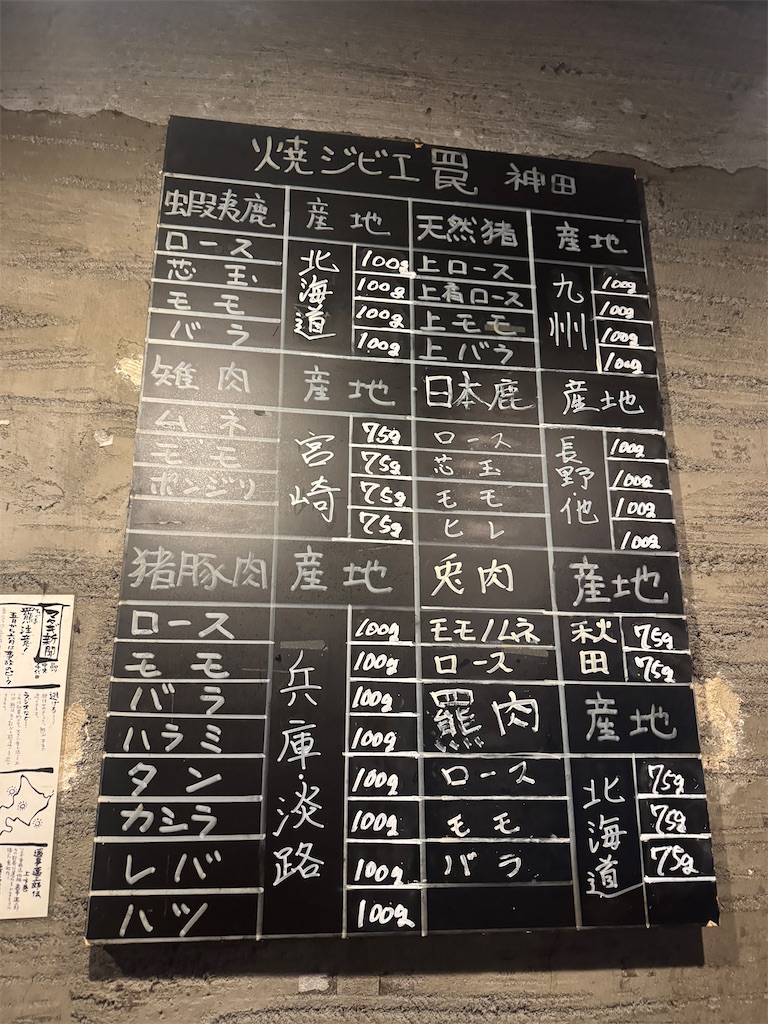 焼ジビエ 罠 神田
蝦夷鹿 産地
ロース 北海道 100g
芯玉 100g
モモ 100g
バラ 100g
雉肉 産地
ムネ 宮崎 75g
モモ 75g
ボンジリ 75g
75g
猪豚肉 産地
ロース 兵庫・淡路 100g
モモ 100g
バラ 100g
ハラミ 100g
タン 100g
カシラ 100g
レバ 100g
ハツ 100g
天然猪 産地
上ロース 九州 100g
上肩ロース 100g
上モモ 100g
上バラ 100g
日本鹿 産地
ロース 長野他 100g
芯玉 100g
モモ 100g
ヒレ 100g
兎肉 産地
モモ/ムネ 秋田 75g
ロース 75g
羆肉 産地
ロース 北海道 75g
モモ 75g
バラ 75g
マタギ新聞